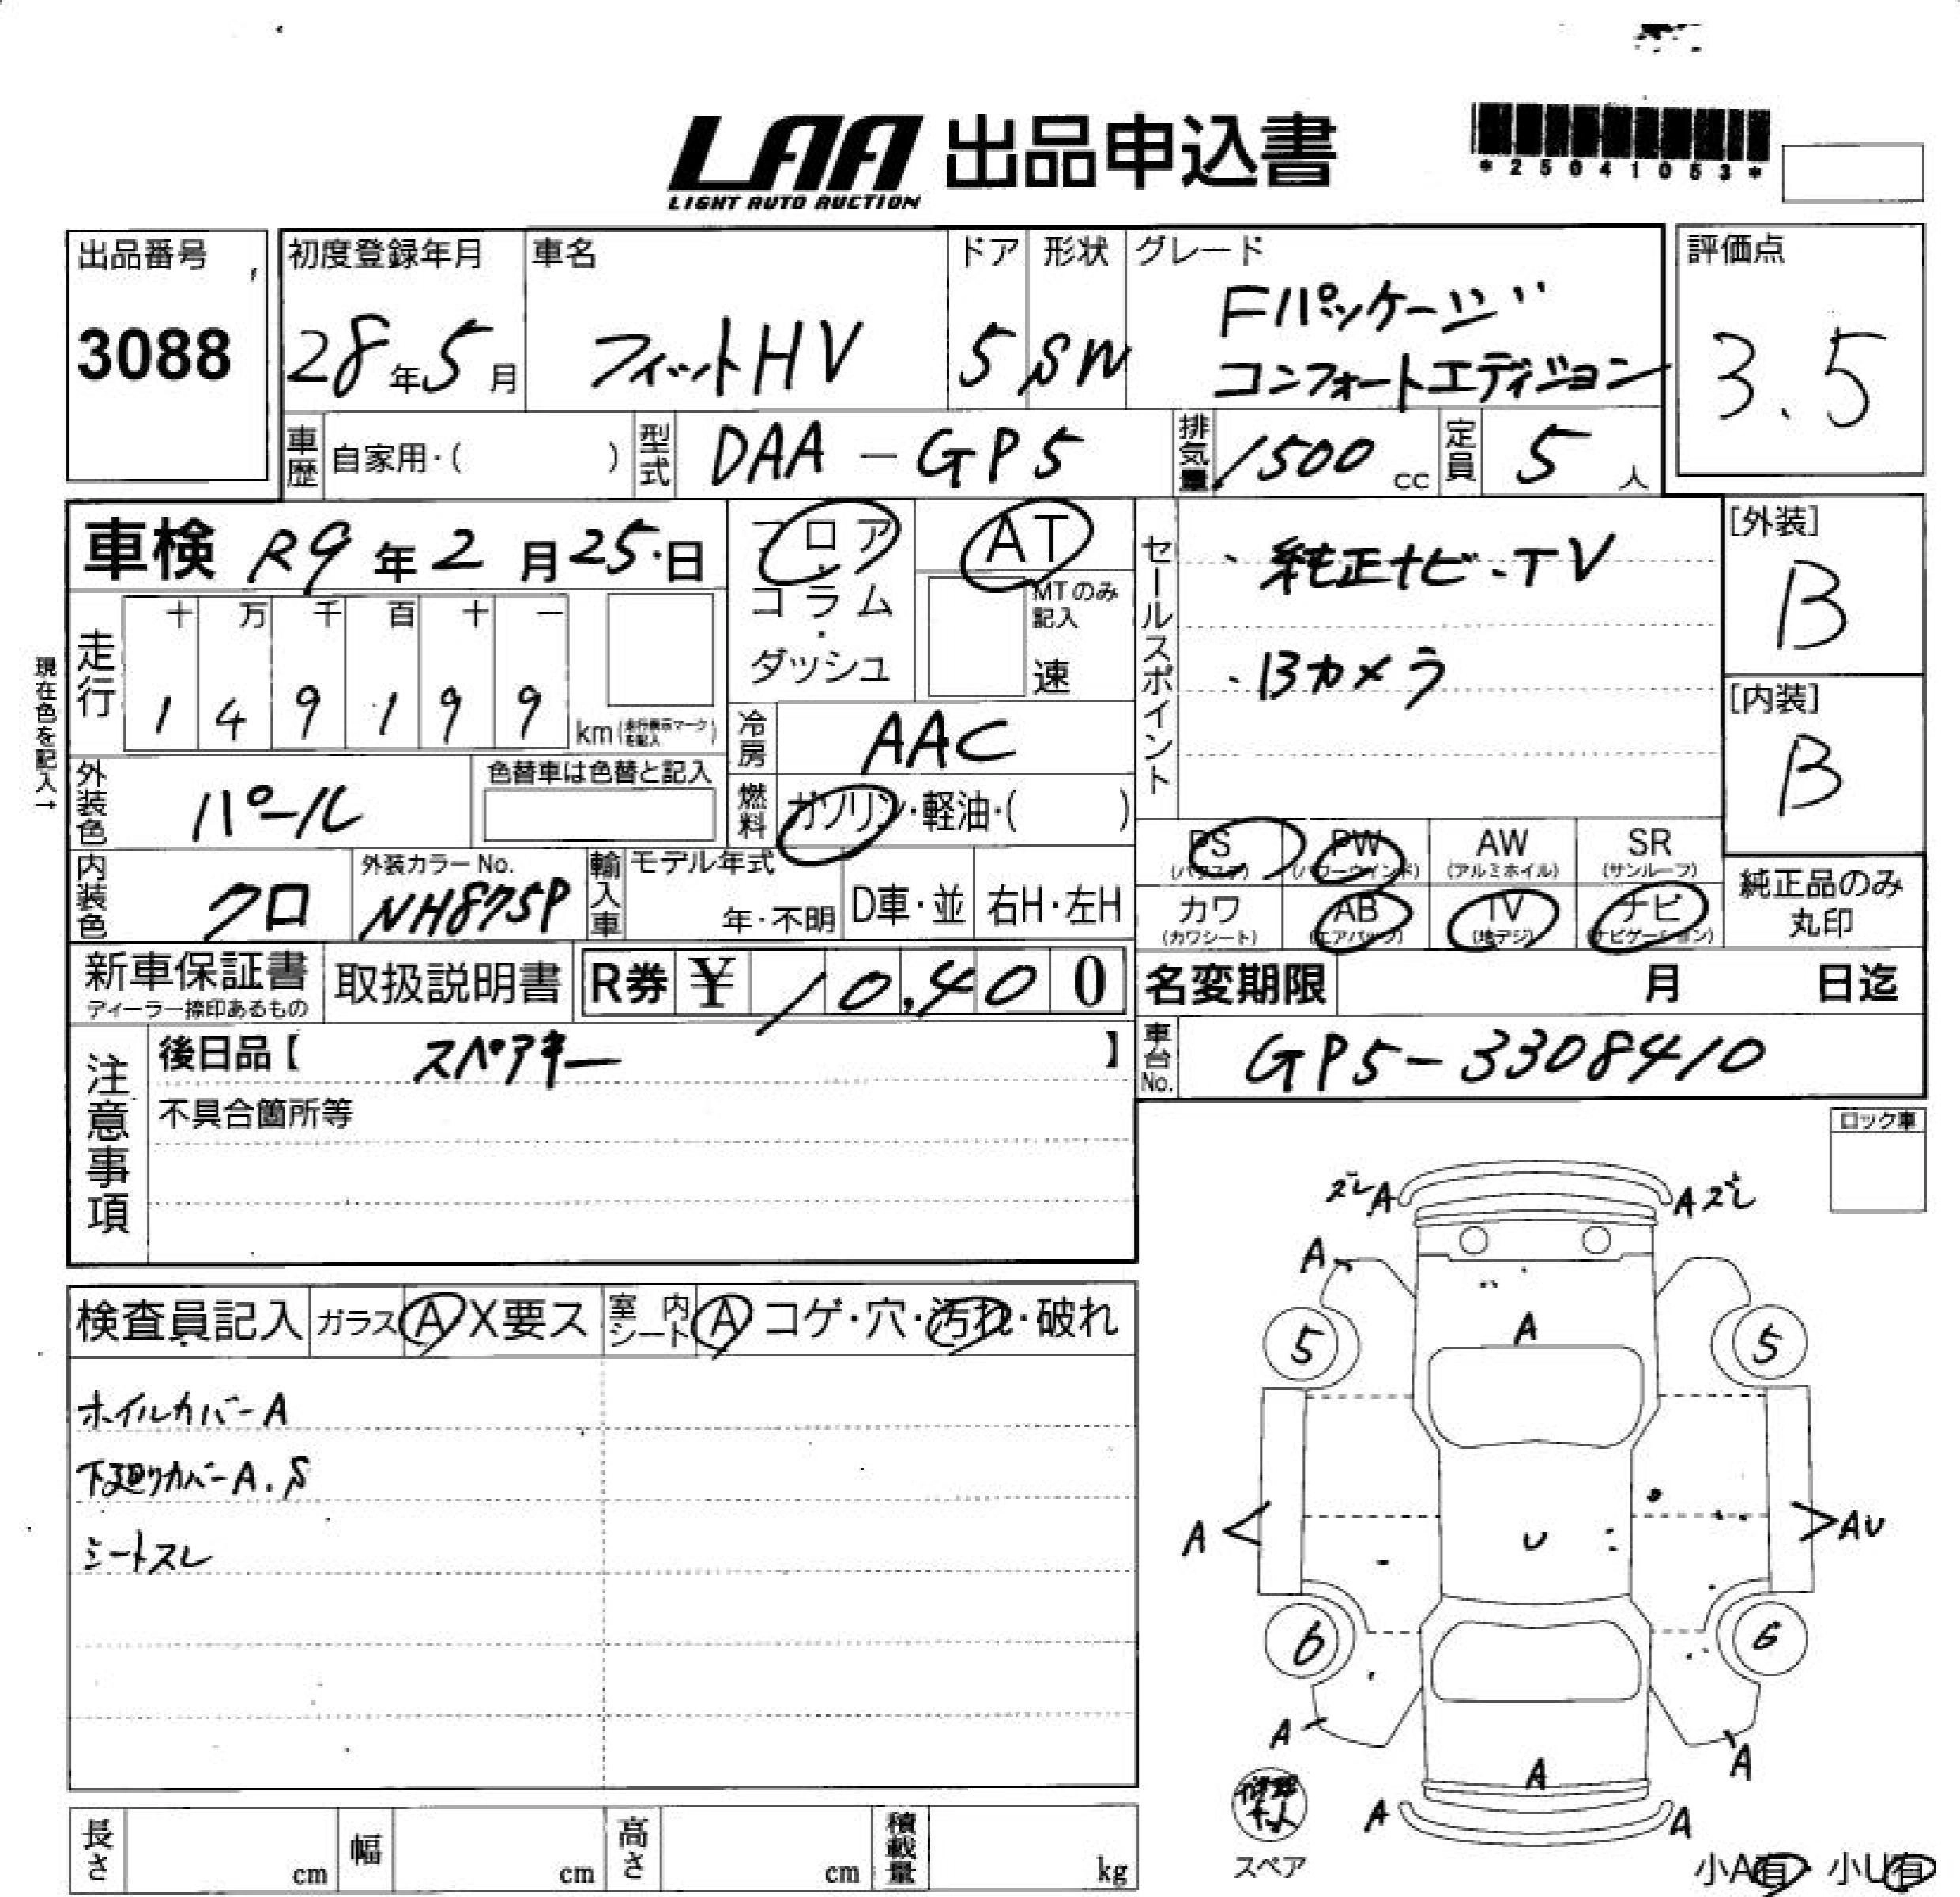 LAA 出品申込書
LIGHT AUTO AUCTION
*25041053*
出品番号
3088
初度登録年月
28年5月
車名
フィットHV
ドア
5
形状
SW
グレード
Fパッケージ
コンフォートエディション
評価点
3.5
車歴 自家用・( )
型式 DAA-GP5
排気量 1500 cc
定員 5 人
車検 R9年2月25日
フロア・コラム・ダッシュ
AT
MTのみ記入
速
セールスポイント
・純正ナビ・TV
・Bカメラ
[外装]
B
[内装]
B
現在色を記入→
走行
十 万 千 百 十 一
1 4 9 1 9 9 km (走行表示マークを記入)
冷房 AAC
外装色 パール
色替車は色替と記入
燃料 ガソリン・軽油・( )
内装色 クロ
外装カラーNo.
NH875P
輸入車
モデル年式
年・不明
D車・並
右H・左H
PS (パワステ)
PW (パワーウインド)
AW (アルミホイル)
SR (サンルーフ)
カワ (カワシート)
AB (エアバック)
TV (地デジ)
ナビ (ナビゲーション)
純正品のみ
丸印
新車保証書
ディーラー捺印あるもの
取扱説明書
R券 ¥ 10,400
名変期限 月 日迄
車台No. GP5-3308410
注意事項
後日品【 スペアキー 】
不具合箇所等
ロック車
検査員記入 ガラス A X要ス 室内シート A コゲ・穴・汚れ・破れ
ホイルカバーA
下廻りカバーA.S
シートスレ
ズレA
Aズレ
A
A
5
5
A
U
AU
6
6
A
A
A
A
A
修理キット
スペア
小A有・小U有
長さ cm
幅 cm
高さ cm
積載量 kg